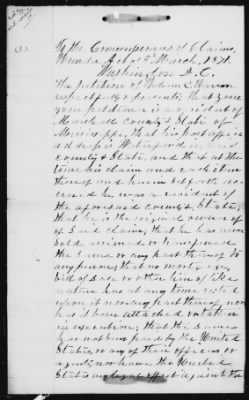 To the Commissioners of Claims,
Under Act of 3d March, 1871.
Washington D.C.
The petition of William C.
respectfully represents, that your
your petitioner is a resident of
Marshall County & State of
Mississippi, that his post office
address is Waterford in said
county & State, and that at the
time his claim and each item
thereof and herein set forth, ac-
crued he was a resident of
the aforesaid county & State,
that he is the original owner
of said claim, that he has never
sold assigned or transferred
the same or any part thereof to
any person, that no mortgage,
bill of sale or other lien of like
nature has at any time rested
upon it nor any part thereof, nor
has it been attached or taken
in execution; that the same
has not been paid by the United
States, or any of their officers or
agents, nor have the United
States any legal offset against the